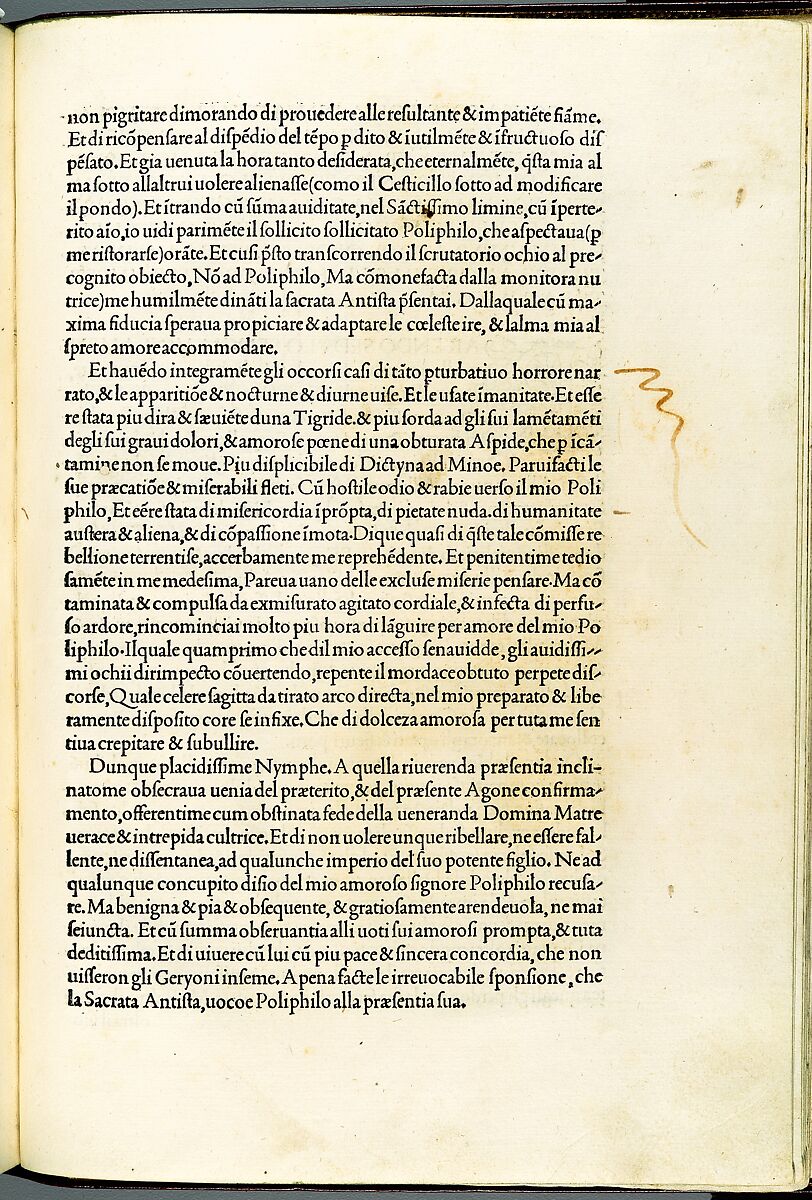 non pigritare dimorando di prouedere alle resultante & impatiẽte fiãme.
Et di ricõpensare al dispẽdio del tẽpo ꝑdito & iutilmẽte & ifructuoso dis
pẽsato. Et gia uenuta la hora tanto desiderata, che eternalmẽte, q̃sta mia al
ma sotto allaltrui uolere alienasse (como il Cesticillo sotto ad modificare
il pondo). Et ĩtrando cũ sũma auiditate, nel Sãctissimo limine, cũ ĩperte-
rito aĩo, io uidi parimẽte il sollicito sollicitato Poliphilo, che aspectaua (ꝑ
me ristorarse) orãte. Et cusi p̃sto transcorrendo il scrutatorio ochio al pre-
cognito obiecto, Nõ ad Poliphilo, Ma cõmonefacta dalla monitora nu
trice) me humilmẽte dinãti la sacrata Antista p̃sentai. Dallaquale cũ ma-
xima fiducia speraua propiciare & adaptare le cœleste ire, & lalma mia al
spreto amore accommodare.
Et hauẽdo integramẽte gli occorsi casi di tãto ꝑturbatiuo horrore nar
rato, & le apparitiõe & nocturne & diurne uise. Et le usate ĩmanitate. Et esse
re stata piu dira & sæuiẽte duna Tigride. & piu sorda ad gli sui lamẽtamẽti
degli sui graui dolori, & amorose pœne di una obturata Aspide, che ꝑ ĩcã-
tamine non se moue. Piu displicibile di Dictyna ad Minoe. Paruifacti le
sue præcatiõe & miserabili fleti. Cũ hostile odio & rabie uerso il mio Poli
philo, Et eẽre stata di misericordia ĩprõpta, di pietate nuda. di humanitate
austera & aliena, & di cõpassione ĩmota. Dique quasi di q̃ste tale cõmisse re
bellione terrentise, accerbamente me reprehẽdente. Et penitentime tedio
samẽte in me medesima, Pareua uano delle excluse miserie pensare. Ma cõ
taminata & compulsa da exmisurato agitato cordiale, & infecta di perfu-
so ardore, rincominciai molto piu hora di lãguire per amore del mio Po
liphilo. Ilquale quam primo che dil mio accesso senauidde, gli auidissi-
mi ochii dirimpecto cõuertendo, repente il mordace obtuto perpete dis-
corse, Quale celere sagitta da tirato arco directa, nel mio preparato & libe
ramente disposito core se infixe. Che di dolceza amorosa per tuta me sen
tiua crepitare & subullire.
Dunque placidissime Nymphe. A quella riuerenda præsentia incli-
natome obsecraua uenia del præterito, & del præsente Agone confirma-
mento, offerentime cum obstinata fede della ueneranda Domina Matre
uerace & intrepida cultrice. Et di non uolere unque ribellare, ne essere fal-
lente, ne dissentanea, ad qualunche imperio del suo potente figlio. Ne ad
qualunque concupito disio del mio amoroso signore Poliphilo recusa-
re. Ma benigna & pia & obsequente, & gratiosamente arendeuola, ne mai
seiuncta. Et cũ summa obseruantia alli uoti sui amorosi prompta, & tuta
deditissima. Et di uiuere cũ lui cũ piu pace & sincera concordia, che non
uisseron gli Geryoni inseme. A pena facte le irreuocabile sponsione, che
la Sacrata Antista, uocoe Poliphilo alla præsentia sua.